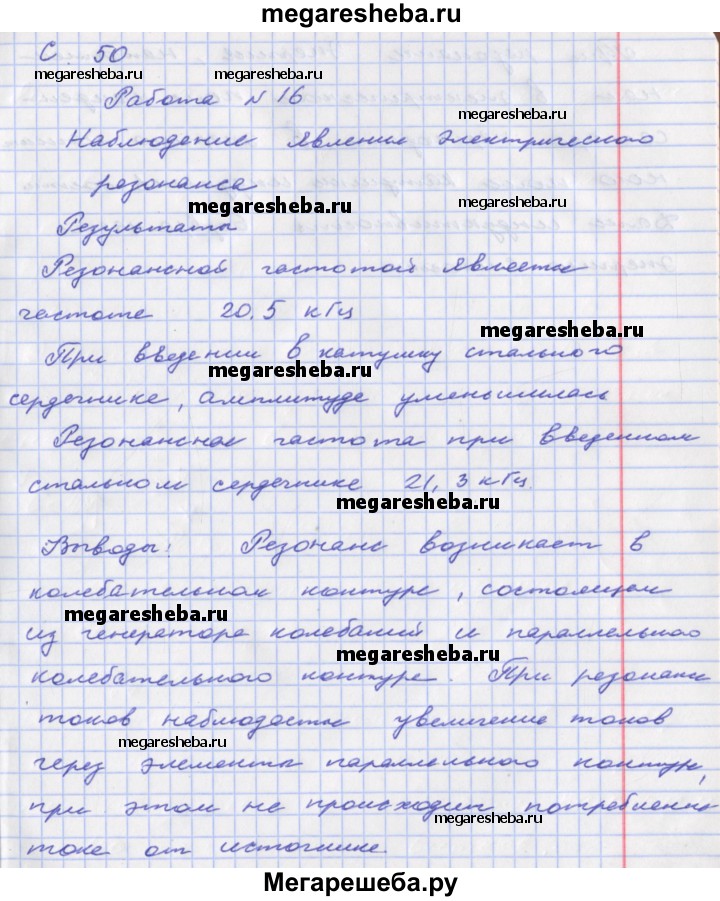 megaresheba.ru
С. 50
Работа №16
megaresheba.ru
Наблюдение явления электрического
резонанса
megaresheba.ru
megaresheba.ru
Результаты
Резонансной частотой является
частота 20,5 кГц
megaresheba.ru
При введении в катушку стального
megaresheba.ru
сердечника, амплитуда уменьшилась
Резонансная частота при введенном
стальном сердечнике 21,3 кГц.
megaresheba.ru
Выводы: Резонанс возникает в
колебательном контуре, состоящем
megaresheba.ru
из генератора колебаний и параллельного
megaresheba.ru
колебательного контура. При резонансе
токов наблюдается увеличение токов
megaresheba.ru
через элементы параллельного контура,
при этом не происходит потребление
megaresheba.ru
тока от источника.
Мегарешеба.ру